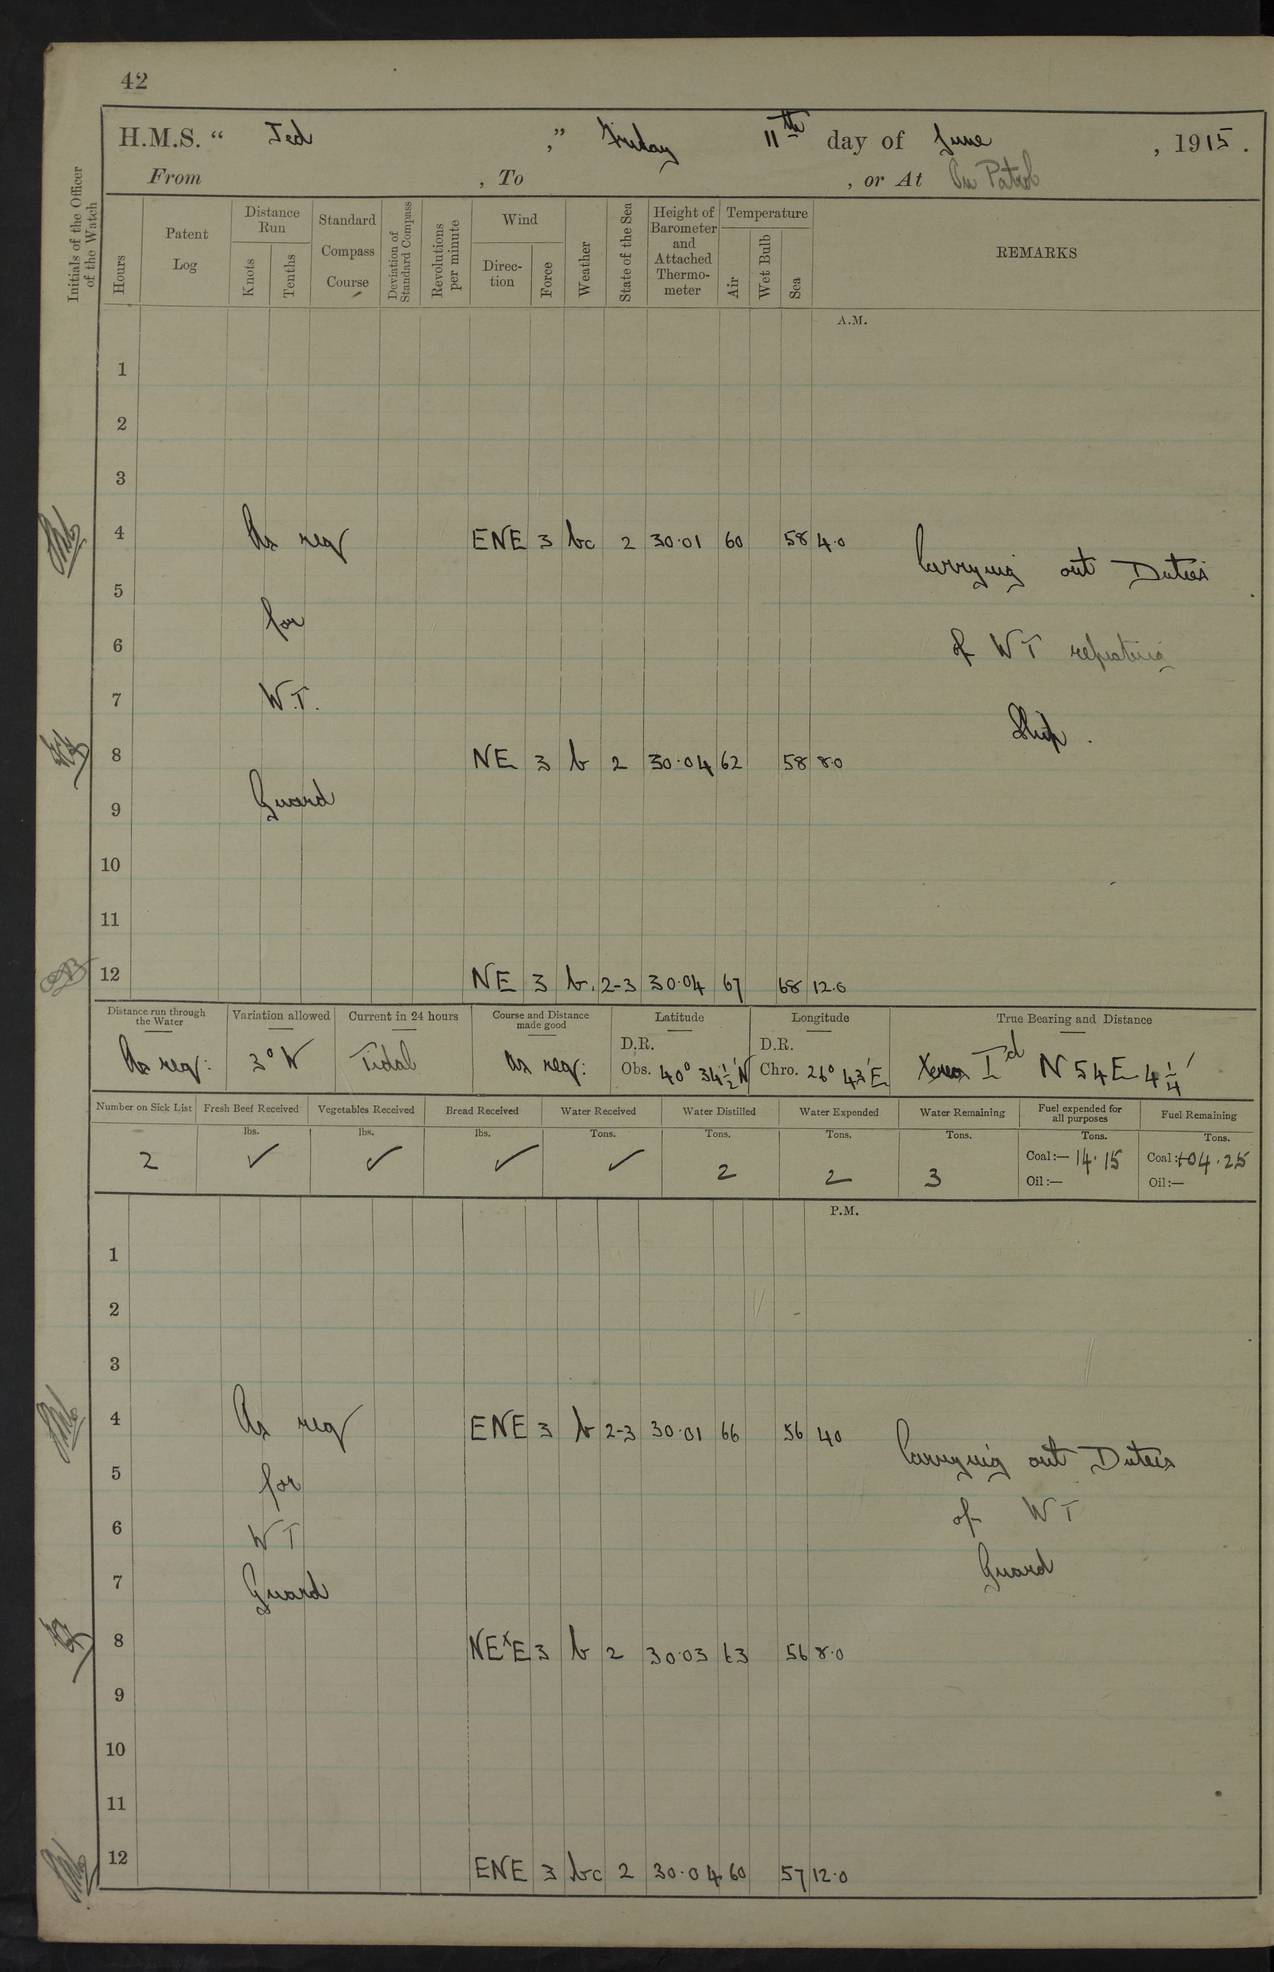 42
H.M.S. “ Jed ,” Friday 11th day of June , 1915 .
From , To , or At On Patrol
Initials of the Officer of the Watch
Hours
Patent Log
Distance Run
Knots
Tenths
Standard Compass Course
Deviation of Standard Compass
Revolutions per minute
Wind
Direc-tion
Force
Weather
State of the Sea
Height of Barometer and Attached Thermo-meter
Temperature
Air
Wet Bulb
Sea
REMARKS
A.M.
1
2
3
4 As req ENE 3 bc 2 30·01 60 58 4·0 Carrying out Duties
5 for
6 of WT repeating
7 W.T. Ship.
8 NE 3 b 2 30·04 62 58 8·0
9 Guard
10
11
12 NE 3 b. 2-3 30·04 67 68 12.0
Distance run through the Water
Variation allowed
Current in 24 hours
Course and Distance made good
Latitude
Longitude
True Bearing and Distance
As req: 3° W Tidal As req: D.R. D.R.
Obs. 40° 34½' N Chro. 26° 43' E Xeros Id N 54 E 4¼'
Number on Sick List
Fresh Beef Received
Vegetables Received
Bread Received
Water Received
Water Distilled
Water Expended
Water Remaining
Fuel expended for all purposes
Fuel Remaining
lbs. lbs. lbs. Tons. Tons. Tons. Tons. Tons. Tons.
2 ✓ ✓ ✓ ✓ 2 2 3 Coal:— 14·15 Coal:— 104·25
Oil:— Oil:—
P.M.
1
2
3
4 As req ENE 3 b 2-3 30·01 66 56 40 Carrying out Duties
5 for
6 WT of WT
7 Guard Guard
8 NExE 3 b 2 30·03 63 56 8·0
9
10
11
12 ENE 3 bc 2 30·04 60 57 12·0